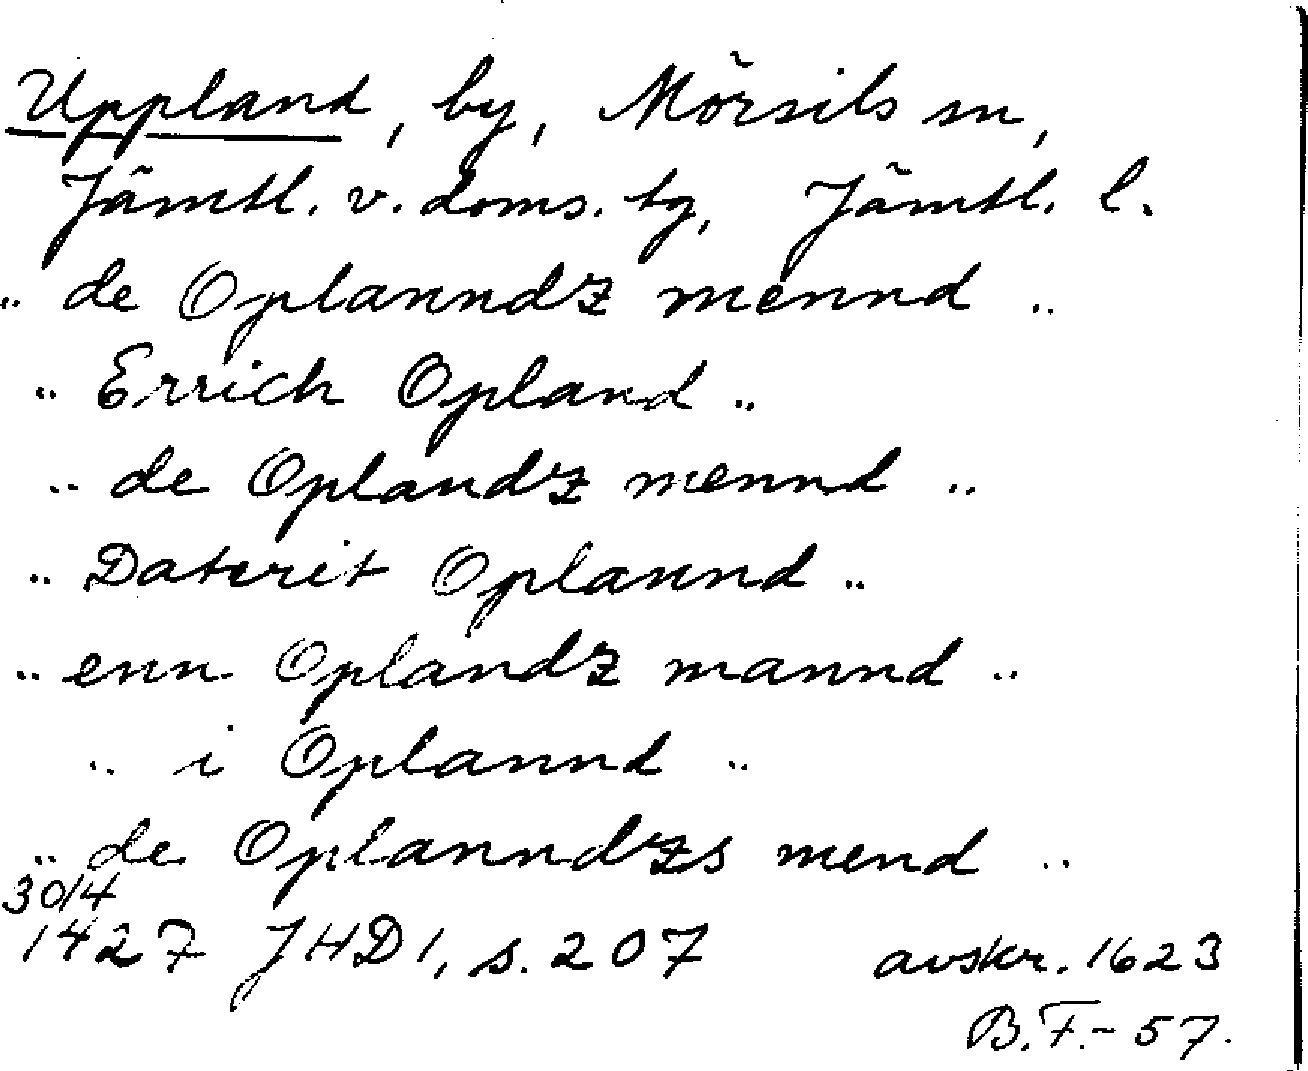 Uppland, by, Mörsils sn,
Jämtl. v. doms. tg, Jämtl. l.
.. de Oplanndz mennd ..
.. Errich Opland ..
.. de Oplandz mennd ..
.. Daterit Oplannd ..
.. enn Oplandz mannd ..
.. i Oplannd ..
.. de Oplanndzs mend ..
30/4
1427 JHD 1, s. 207 avskr. 1623
B.F.-57.